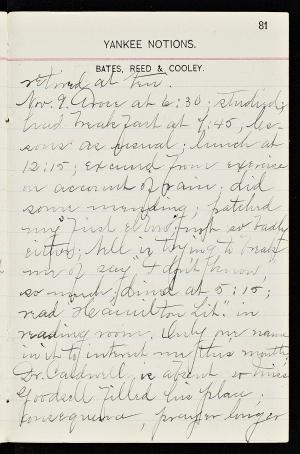 81
YANKEE NOTIONS.
BATES, REED & COOLEY.
retired at ten.
Nov. 9. Arose at 6:30; studied;
had breakfast at 7:45; les-
sons as usual; lunch at
12:15; excused from exercise
on account of rain; did
some mending; patched
my "first elbow", not so badly
either; Nell is trying to break
me of say "I don't know",
so much; dined at 5:15;
read "Hamilton Lit." in
reading room. Only one name
in it to interest me this month;
Dr. Caldwell is absent so Miss
Goodsell filled his place;
consequence, prayer longer